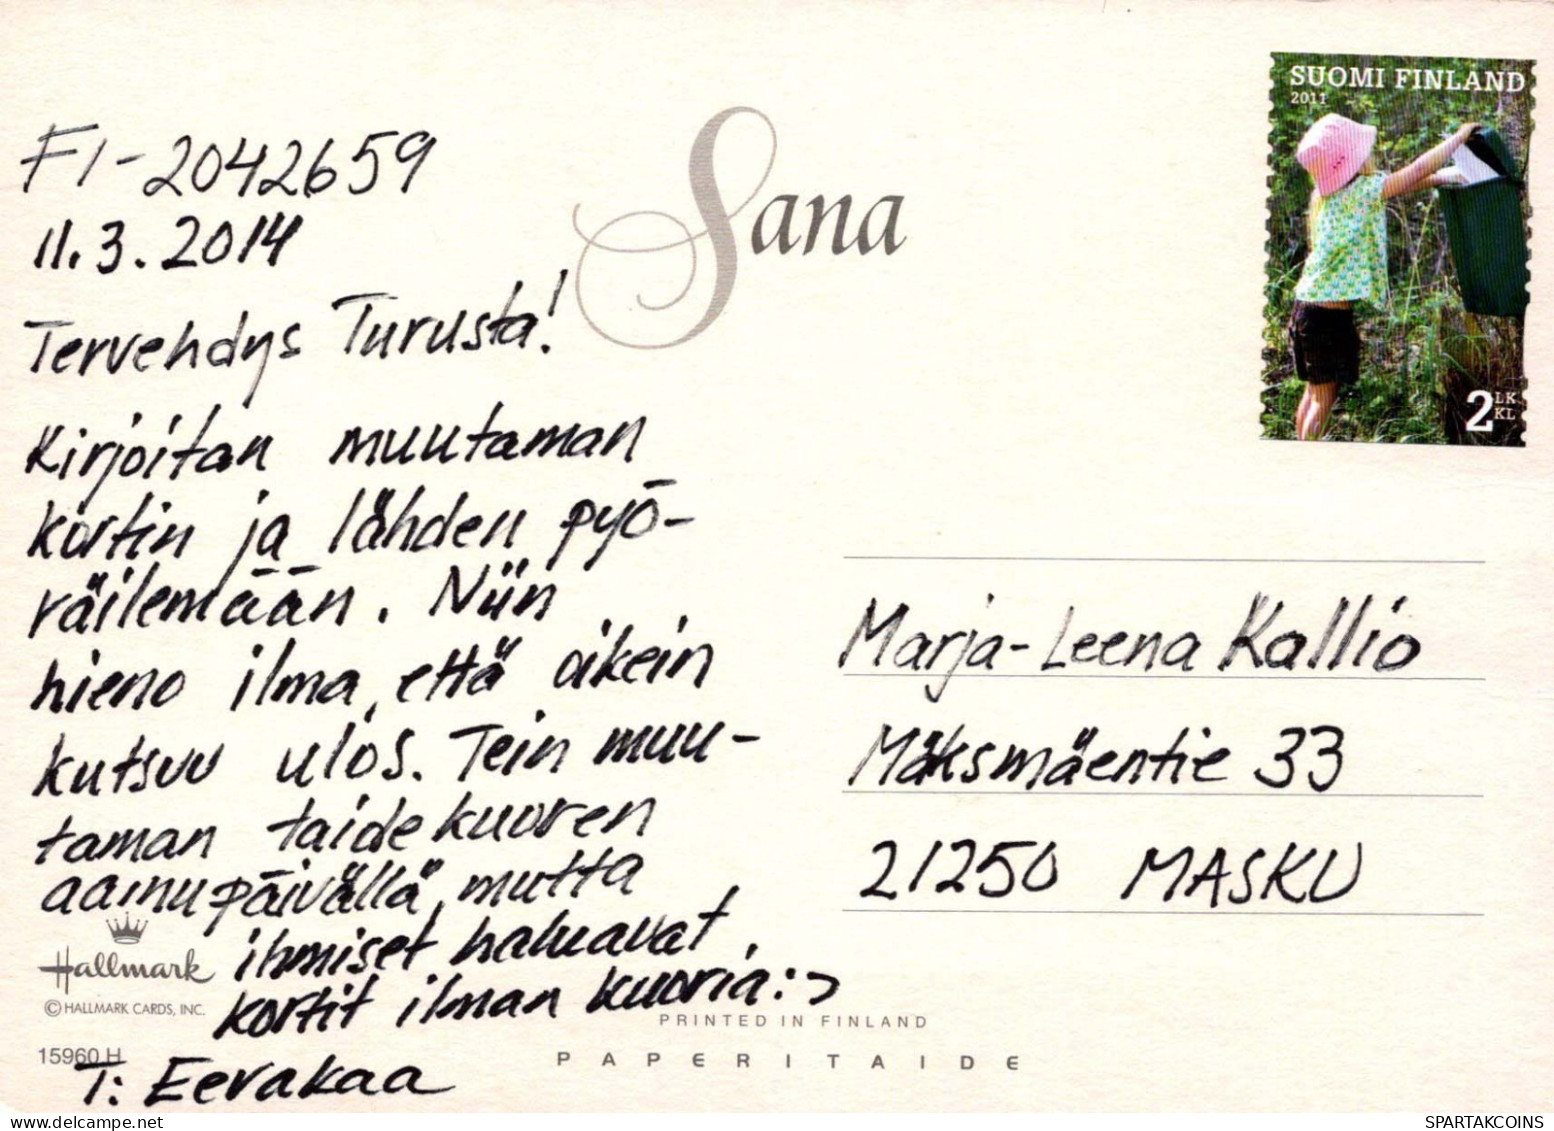 SUOMI FINLAND
2011
2 LK
KL
Sana
FI-2042659
11.3.2014
Tervehdys Turusta!
Kirjoitan muutaman
kortin ja lähden pyö-
räilemään. Niin
hieno ilma, että oikein
kutsuu ulos. Tein muu-
taman taidekuoren
aamupäivällä, mutta
ihmiset haluavat
kortit ilman kuoria:>
T: Eevakaa
Marja-Leena Kallio
Mäksmäentie 33
21250 MASKU
Hallmark
© HALLMARK CARDS, INC.
15960 H
PRINTED IN FINLAND
PAPERITAIDE
SPARTAKCOINS